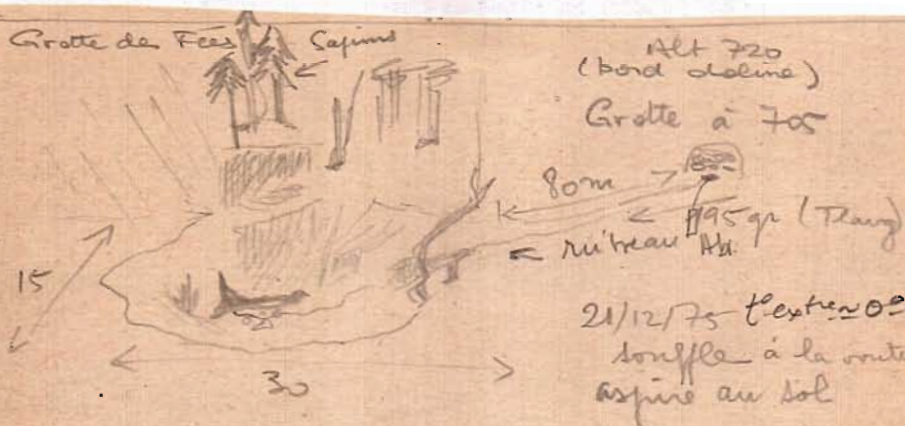 Grotte des Fées
Sapins
Alt 720
(bord doline)
Grotte à 705
80m
ruisseau
195 gr
15
30
21/12/75 t° extre ≃ 0°
souffle à la voute
aspire au sol